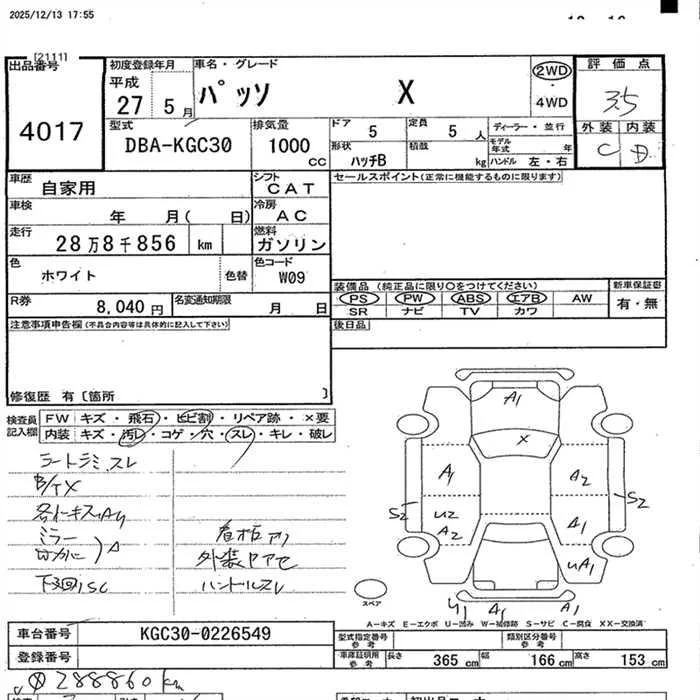 2025/12/13 17:55
[2111]
出品番号
4017
初度登録年月
平成
27 5月
車名・グレード
パッソ X
2WD
・
4WD
評価点
3.5
外装 内装
C D
型式
DBA-KGC30
排気量
1000 CC
ドア 5
定員 5 人
ディーラー・並行
モデル年式 年
形状 ハッチB
積載 kg
ハンドル 左・右
車歴
自家用
シフト
CAT
セールスポイント(正常に機能するものに限ります)
車検
年 月( 日)
冷房
AC
走行
28万8千856 km
燃料
ガソリン
色
ホワイト
色替
色コード
W09
装備品 (純正品に限り○をつけてください)
PS PW ABS エアB AW
SR ナビ TV カワ
新車保証書
有・無
R券
8,040円
名変通知期限
月 日
後日品
注意事項申告欄(不具合内容等は具体的に記入して下さい)
修復歴 有〔箇所 〕
検査員記入欄
FW キズ・飛石・ヒビ割・リペア跡・×要
内装 キズ・汚レ・コゲ・穴・スレ・キレ・破レ
A1
X
A1
A2
S2
S2
U2
A2
A1
UA1
U1
A1
A1
スペア
ミラー
外装
ハンドルスレ
A-キズ E-エクボ U-凹み W-補修跡 S-サビ C-腐食 XX-交換済
車台番号
KGC30-0226549
登録番号
型式指定番号
参考
類別区分番号
参考
車庫証明用
参考
長さ 365 cm
幅 166 cm
高さ 153 cm
288860 km